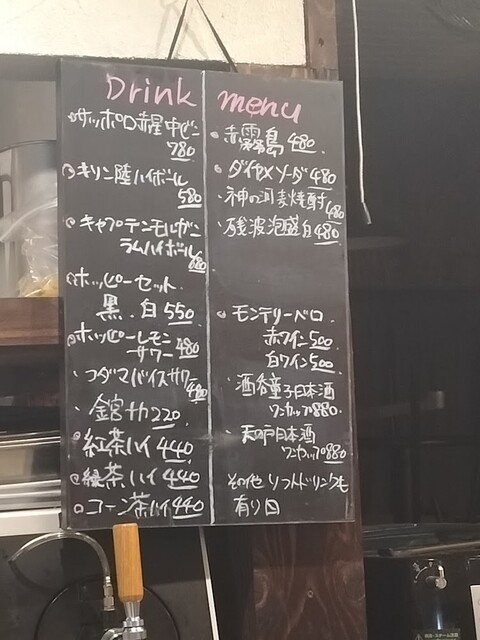 Drink menu
サッポロ赤星中ビン
780
キリン陸ハイボール
580
キャプテンモルガン
ラムハイボール
680
ホッピーセット
黒.白 550
ホッピーレモン
サワー 480
コダマバイスサワー
480
金宮ナカ 220
紅茶ハイ 440
緑茶ハイ 440
コーン茶ハイ 440
赤霧島 480
ダイヤメソーダ 480
神の河麦焼酎
480
残波泡盛白 480
モンテリーベロ
赤ワイン 500
白ワイン 500
酒呑童子日本酒
ワンカップ 880
天の戸日本酒
ワンカップ 880
その他ソフトドリンクも
有り